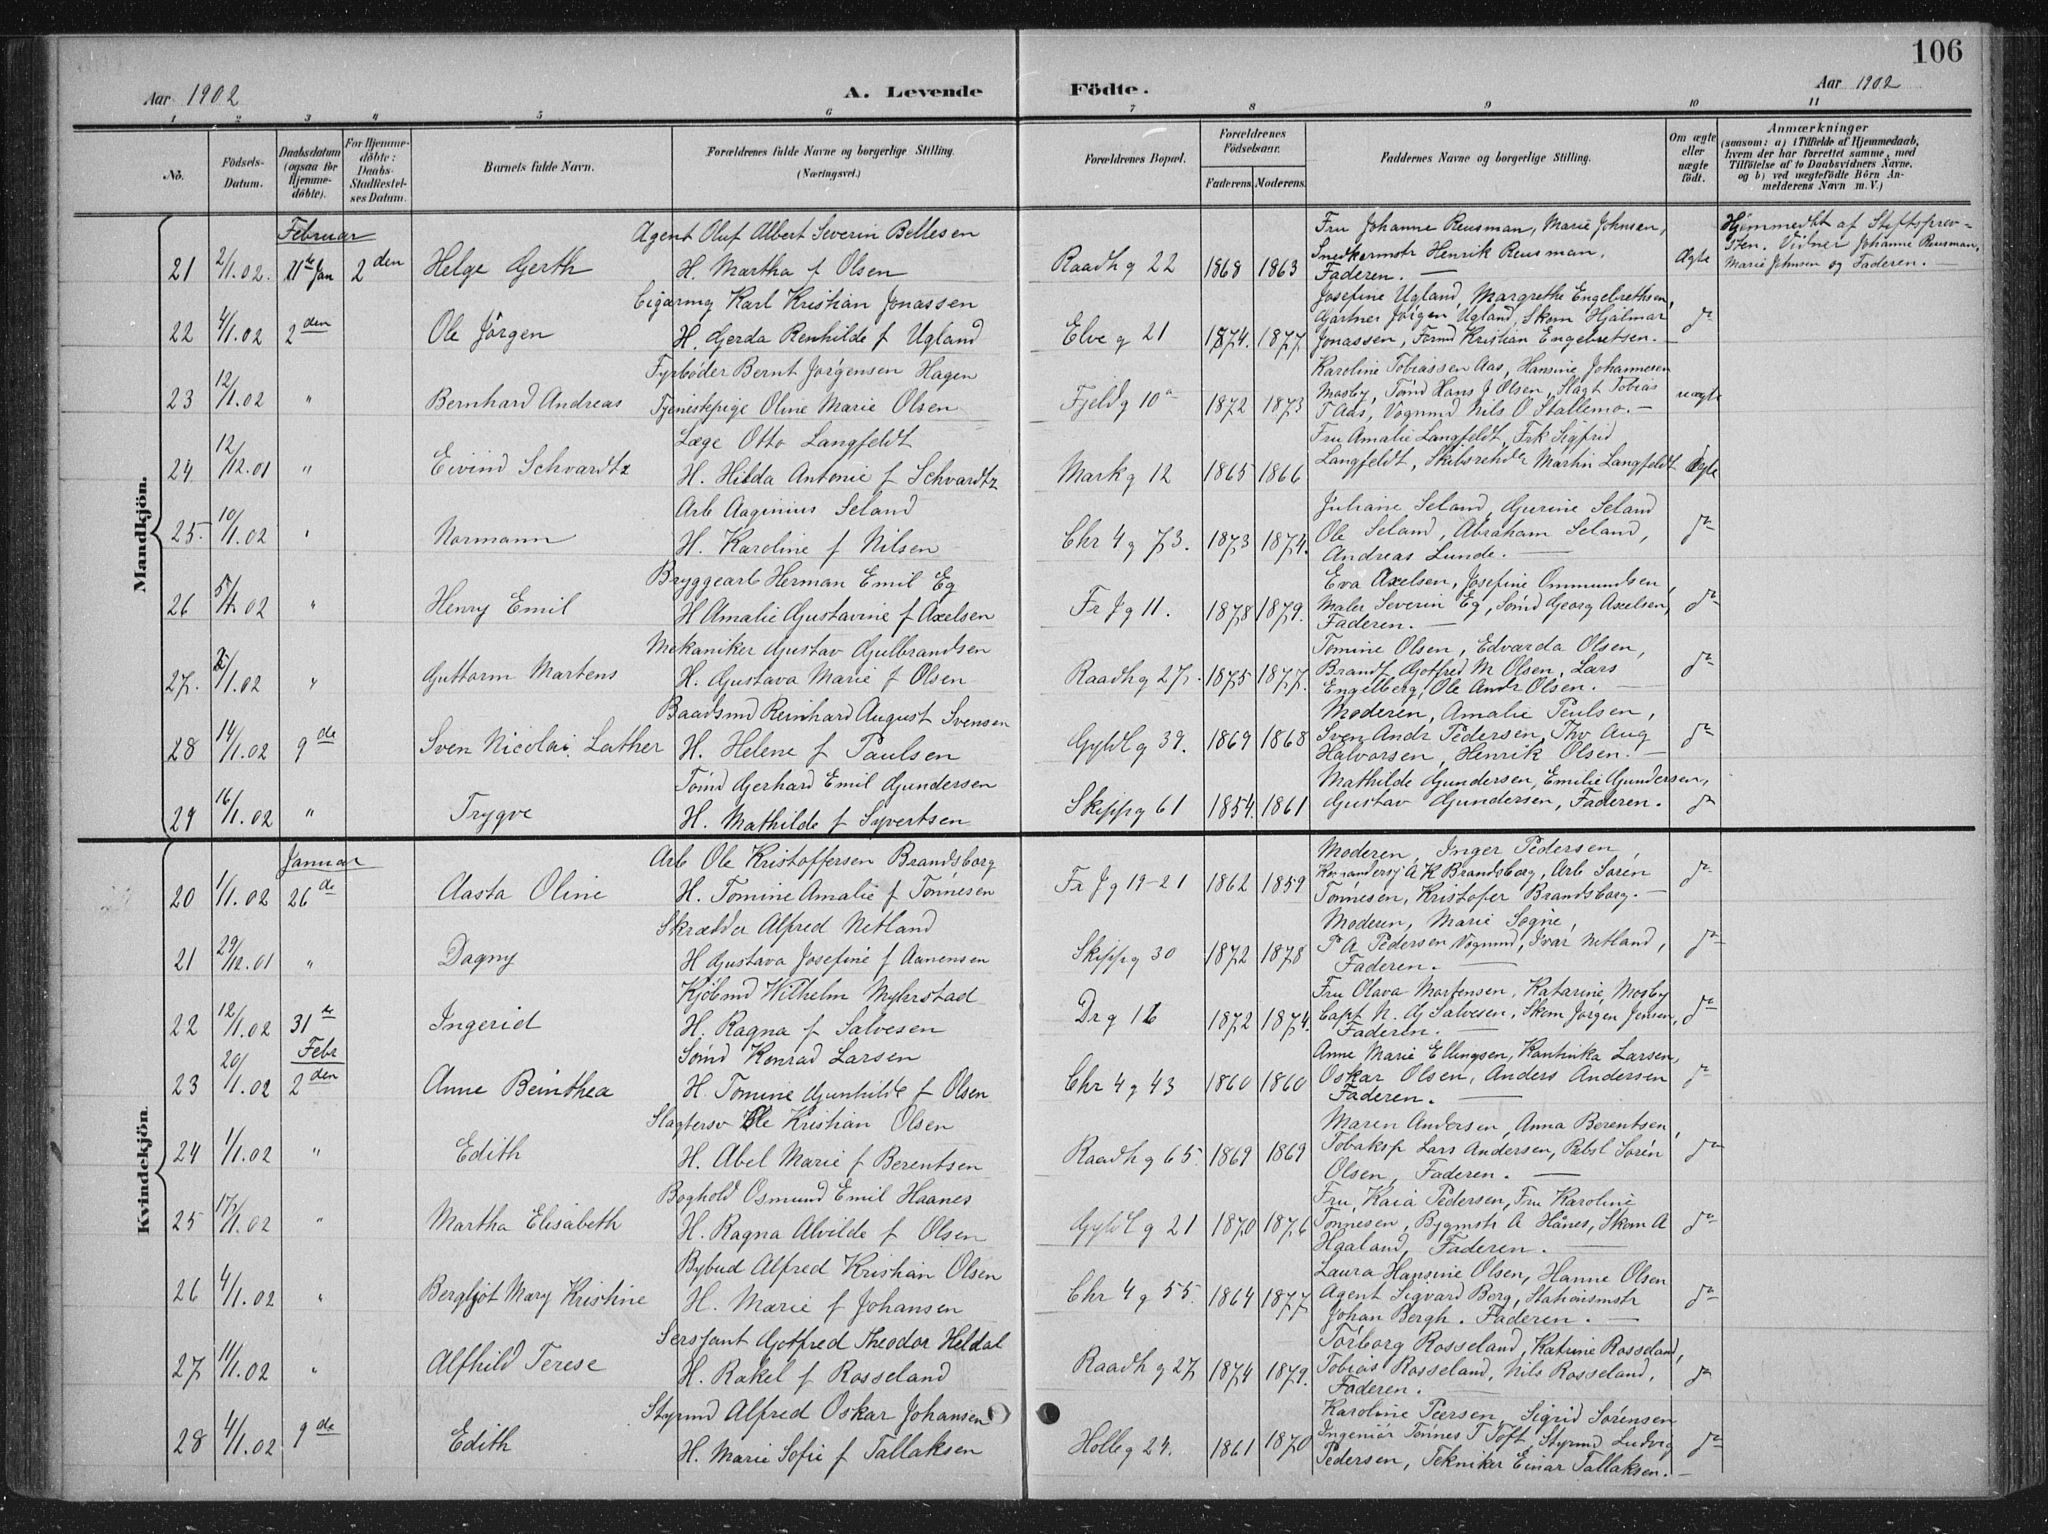 106
Aar 1902
A. Levende
Födte.
Aar 1902
1 2 3 4 5 6 7 8 9 10 11
No.
Födsels-Datum.
Daabsdatum (ogsaa for Hjemmedöbte).
For Hjemmedöbte: Daabs-Stadfæstelses Datum.
Barnets fulde Navn.
Forældrenes fulde Navne og borgerlige Stilling. (Næringsvei.)
Forældrenes Bopæl.
Forældrenes Födselsaar.
Faderens. Moderens.
Faddernes Navne og borgerlige Stilling.
Om ægte eller uægte födt.
Anmærkninger
(saasom: a) i Tilfælde af Hjemmedaab, hvem der har forrettet samme, med Tilföielse af to Daabsvidners Navne. og b) ved uægtefödte Börn Anmelderens Navn m. V.)
Mandkjön.
Februar
Agent Oluf Albert Severin Bellesen
Fru Johanne Reusman, Marie Johnsen,
Hjemmedbt af Stiftsprov-
21 2/1.02. 21de Jan 2den Helge Gerth H. Martha f Olsen Raadh g 22 1868 1863 Snedkermstr Henrik Reusman. Ægte
sten. Vidner Johanne Reusman,
Faderen. —
Marie Johnsen og Faderen. —
Cigarmg Karl Kristian Jonassen
Josefine Ugland, Margrethe Engebrethsen,
22 4/1.02 2den Ole Jörgen H. Gjerda Renhilde f Ugland Elve g 21 1874. 1877 Gartner Jörgen Ugland, Skom Hjalmar do
Jonassen, Formd Kristian Engebretsen. —
Fyrböder Bernt Jørgensen Hagen
Karoline Tobiassen Aas, Hansine Johannesen
23 12/1.02 " Bernhard Andreas Tjenestepige Oline Marie Olsen Fjeld g 10a 1872 1873 Mosby, Tømd Hans J Olsen, Slagt Tobias uægte
T Aas, Vognmd Nils O Stallemo. —
Læge Otto Langfeldt
Fru Amalie Langfeldt, Frk Sigfrid
24 12/12.01 " Eivind Schvardtz H. Hilda Antonie f Schvardtz Mark g 12 1865 1866 Langfeldt, Skibsrehdr Martin Langfeldt Ægte
Arb Aaginius Seland
Juliane Seland, Gurine Seland
25. 10/1.02 " Normann H. Karoline f Nilsen Chr 4 g 73. 1873 1874. Ole Seland, Abraham Seland, do
Andreas Lunde. —
Bryggearb Herman Emil Eg
Eva Axelsen, Josefine Ommundsen,
26 5/1.02 " Henry Emil H Amalie Gustavine f Axelsen Fr J g 11. 1878 1879. Maler Severin Eg, Sømd Georg Axelsen, do
Faderen. —
Mekaniker Gustav Gulbrandsen
Tomine Olsen, Edvarda Olsen,
27. /1.02 " Guttorm Martens H. Gustava Marie f Olsen Raadh g 27. 1875 1877. Brandt Gotfred M Olsen, Lars do
Engelberg, Ole Andr Olsen. —
Baadsmd Reinhard August Svensen
Moderen, Amalie Peulsen,
28 14/1.02 9de Sven Nicolai Lather H. Helene f Paulsen Gyldl g 39. 1869 1868 Sven Andr Pedersen, Thv Aug do
Halvorsen, Henrik Olsen. —
Tømd Gerhard Emil Gundersen
Mathilde Gundersen, Emilie Gundersen,
29 16/1.02 " Trygve H. Mathilde f Syvertsen Skippg 61 1854. 1861 Gustav Gundersen, Faderen. do
Kvindekjön.
Januar
Arb Ole Kristoffersen Brandsborg
Moderen, Inger Pedersen,
20 1/1.02 26de Aasta Oline H. Tomine Amalie f Tønnesen Fr J g 19-21 1862 1859 A K Brandsborg, Arb Sören do
Tönnesen, Kristofer Brandsborg. —
Skrædder Alfred Netland
Moderen, Marie Søgne,
21 29/12.01 " Dagny H Gustava Josefine f Aanensen Skippg 30 1872 1878 P A Pedersen Vognmd, Ivar Netland, do
Faderen. —
Kjöbmd Wilhelm Myhrstad
Fru Olava Mortensen, Katarine Mosby
22 12/1.02 31te Ingerid H. Ragna f Salvesen Dr g 16 1872 1874. Capt N. Salvesen, Skom Jørgen Jensen, do
Faderen. —
Febr
Sømd Konrad Larsen
Anne Marie Ellingsen, Kantinka Larsen,
23 20/1.02 2den Anne Beinthea H. Tomine Gunhilde f Olsen Chr 4 g 43 1860 1860 Oskar Olsen, Anders Andersen do
Faderen. —
Slagtersv Ole Kristian Olsen
Maren Andersen, Anna Berentsen,
24 1/1.02 " Edith H. Abel Marie f Berentsen Raadh g 65. 1869 1869 Tobaksp Lars Andersen, Pabsl Sørén do
Olsen, Faderen. —
Boghold Osmund Emil Haanes
Fru, Kaia Pedersen, Fru Karoline
25 17/1.02 " Martha Elisabeth H. Ragna Alvilde f Olsen Gyldl g 21 1870 1876 Tönnesen, Bygmstr A Hånes, Skom A do
Haaland, Faderen. —
Bybud Alfred Kristian Olsen
Laura Hansine Olsen, Hanne Olsen
26 4/1.02 " Bergljot Mary Kristine H. Marie f Johansen Chr 4 g 55. 1864 1877 Agent Sigvard Berg, Stationsmstr do
Johan Bergh. Faderen. —
Sersjant Gotfred Theodor Heldal
Torborg Rosseland, Katrine Rosseland,
27 11/1.02 " Alfhild Terese H. Rakel f Rosseland Raadh g 27 1874 1879. Tobias Rosseland, Nils Rosseland, do
Faderen. —
Styrmd Alfred Oskar Johansen
Karoline Peersen, Sigrid Sørensen
28 4/1.02 9de Edith H. Marie Sofie f Tallaksen Holle g 24. 1861 1870 Ingeniör Tønnes T Toft, Styrmd Ludvig do
Pedersen, Tekniker Einar Tallaksen. —